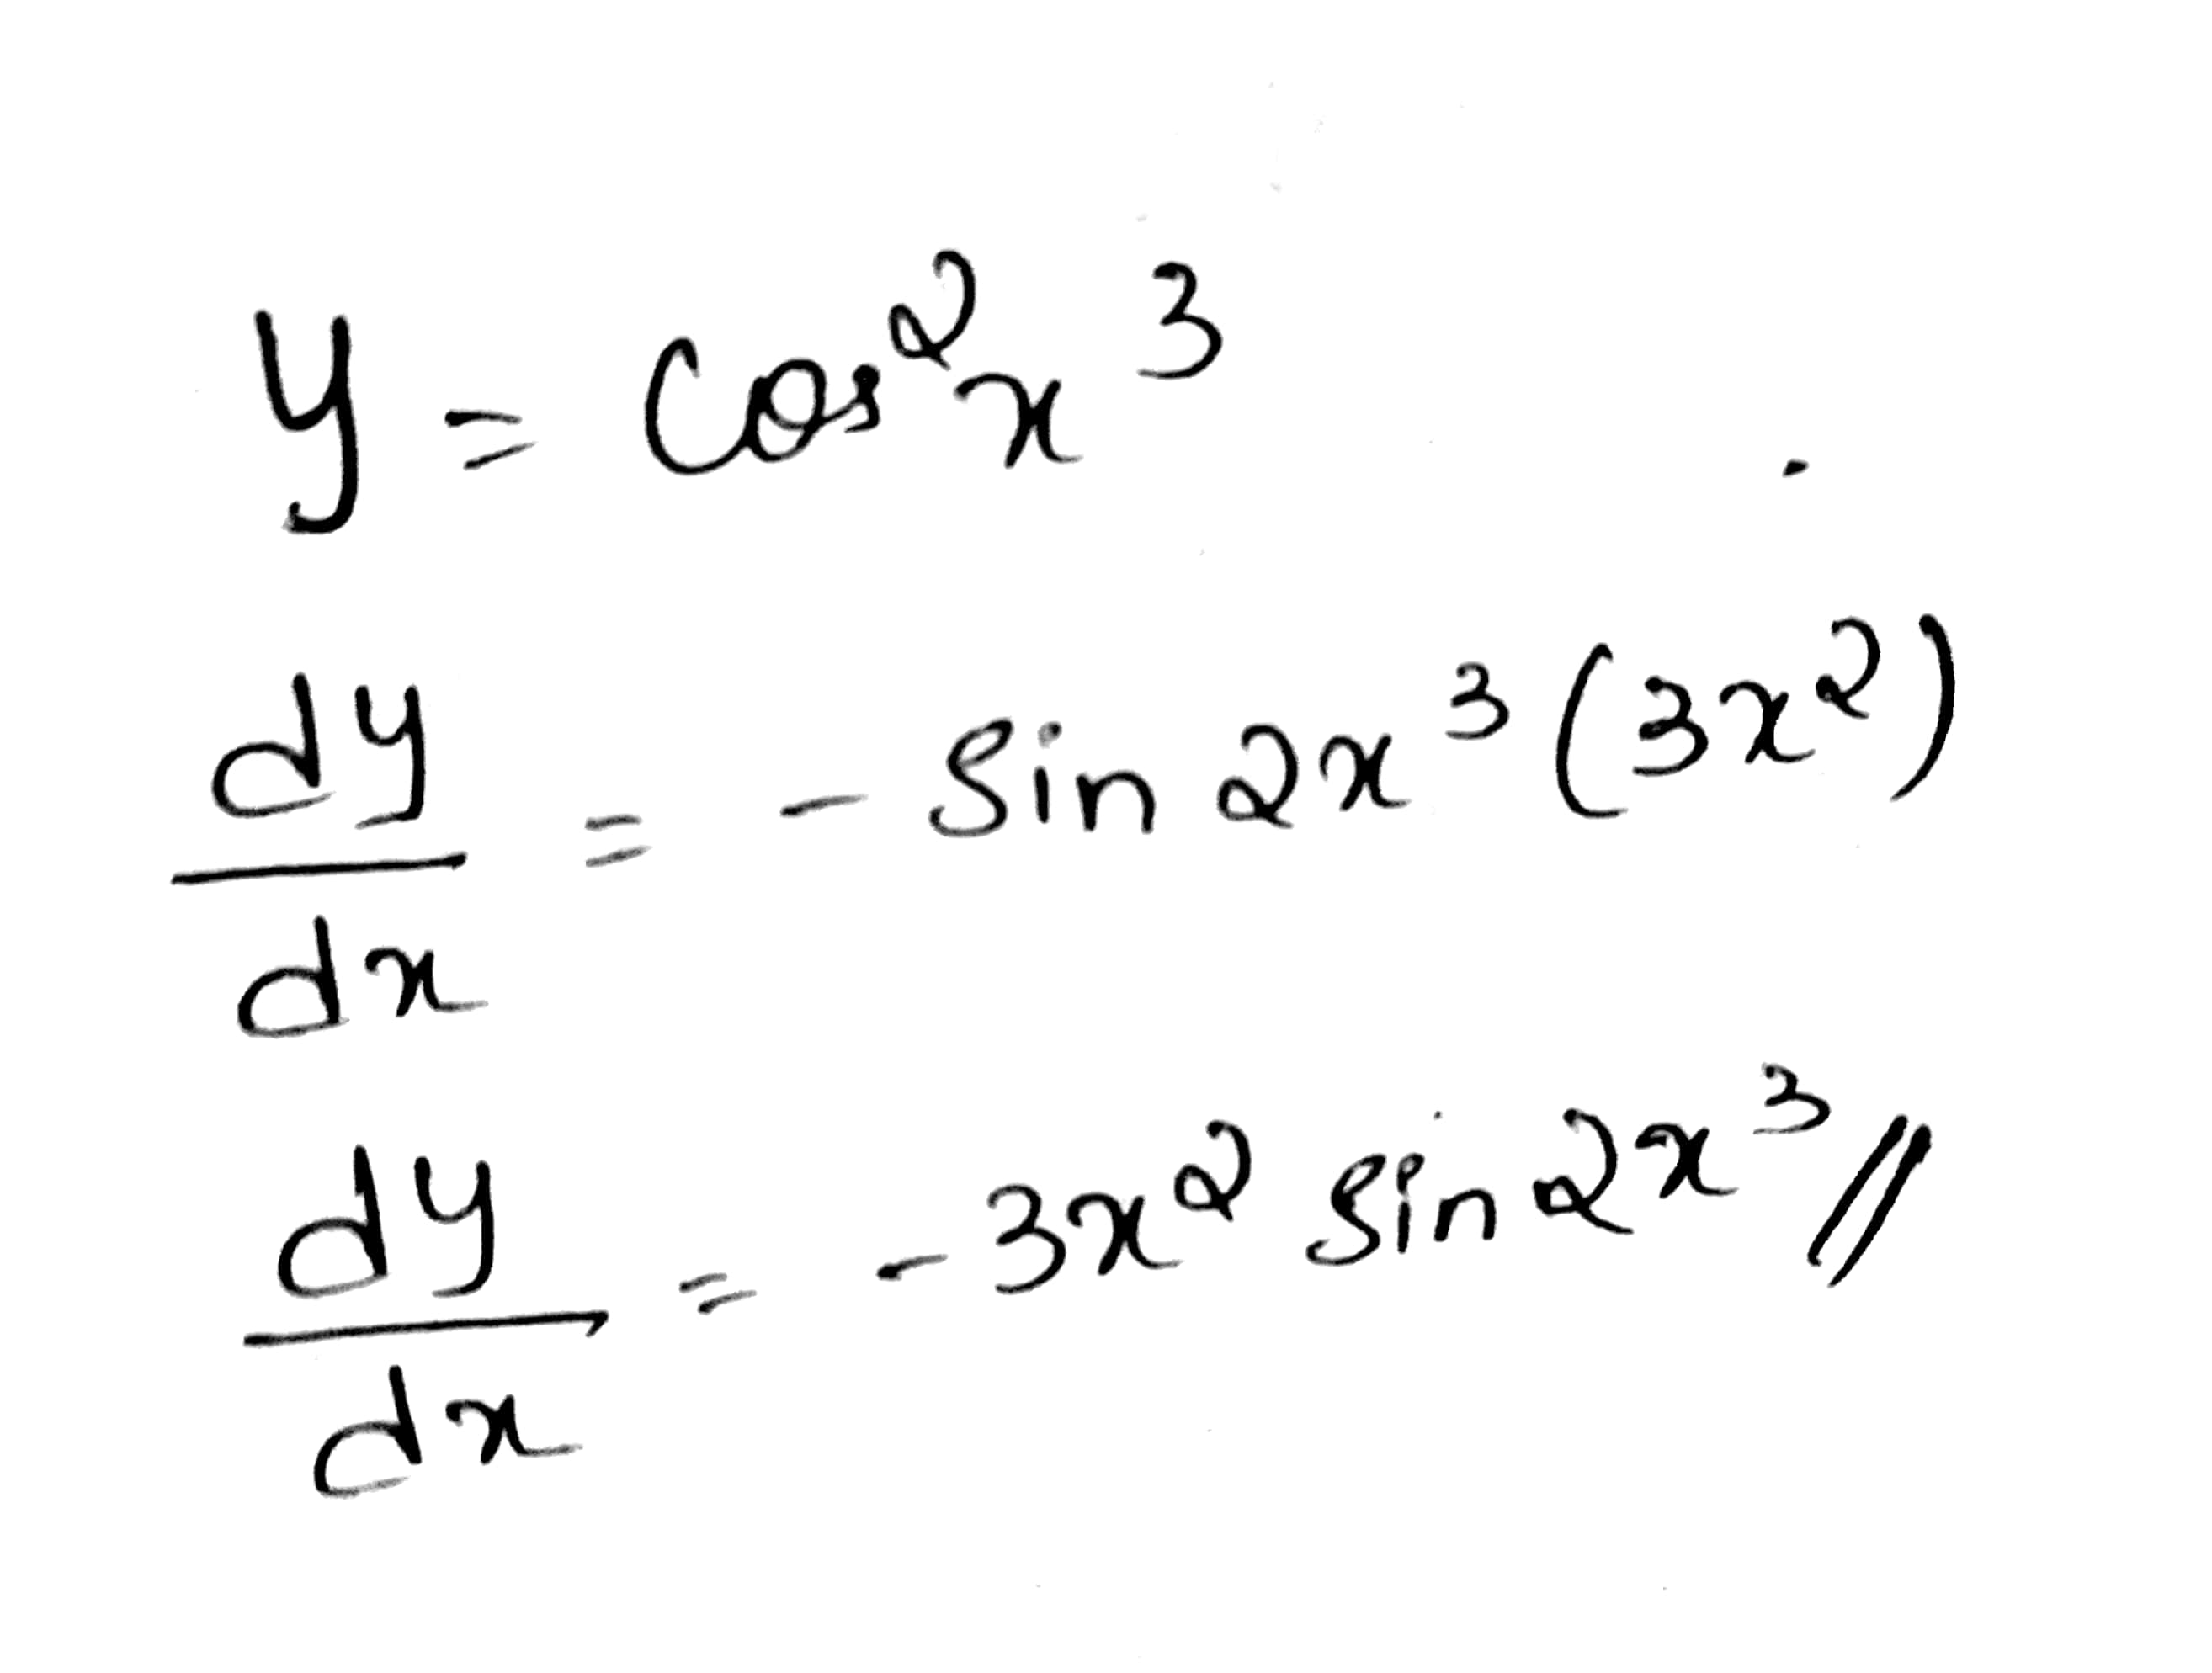 y = cos²x³
dy/dx = - sin 2x³ (3x²)
dy/dx = - 3x² sin 2x³ //